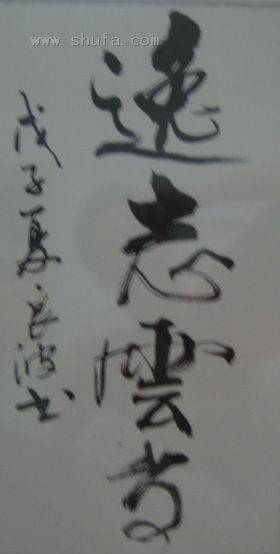 www.shufa.com
逸志雲
戊子夏良波书